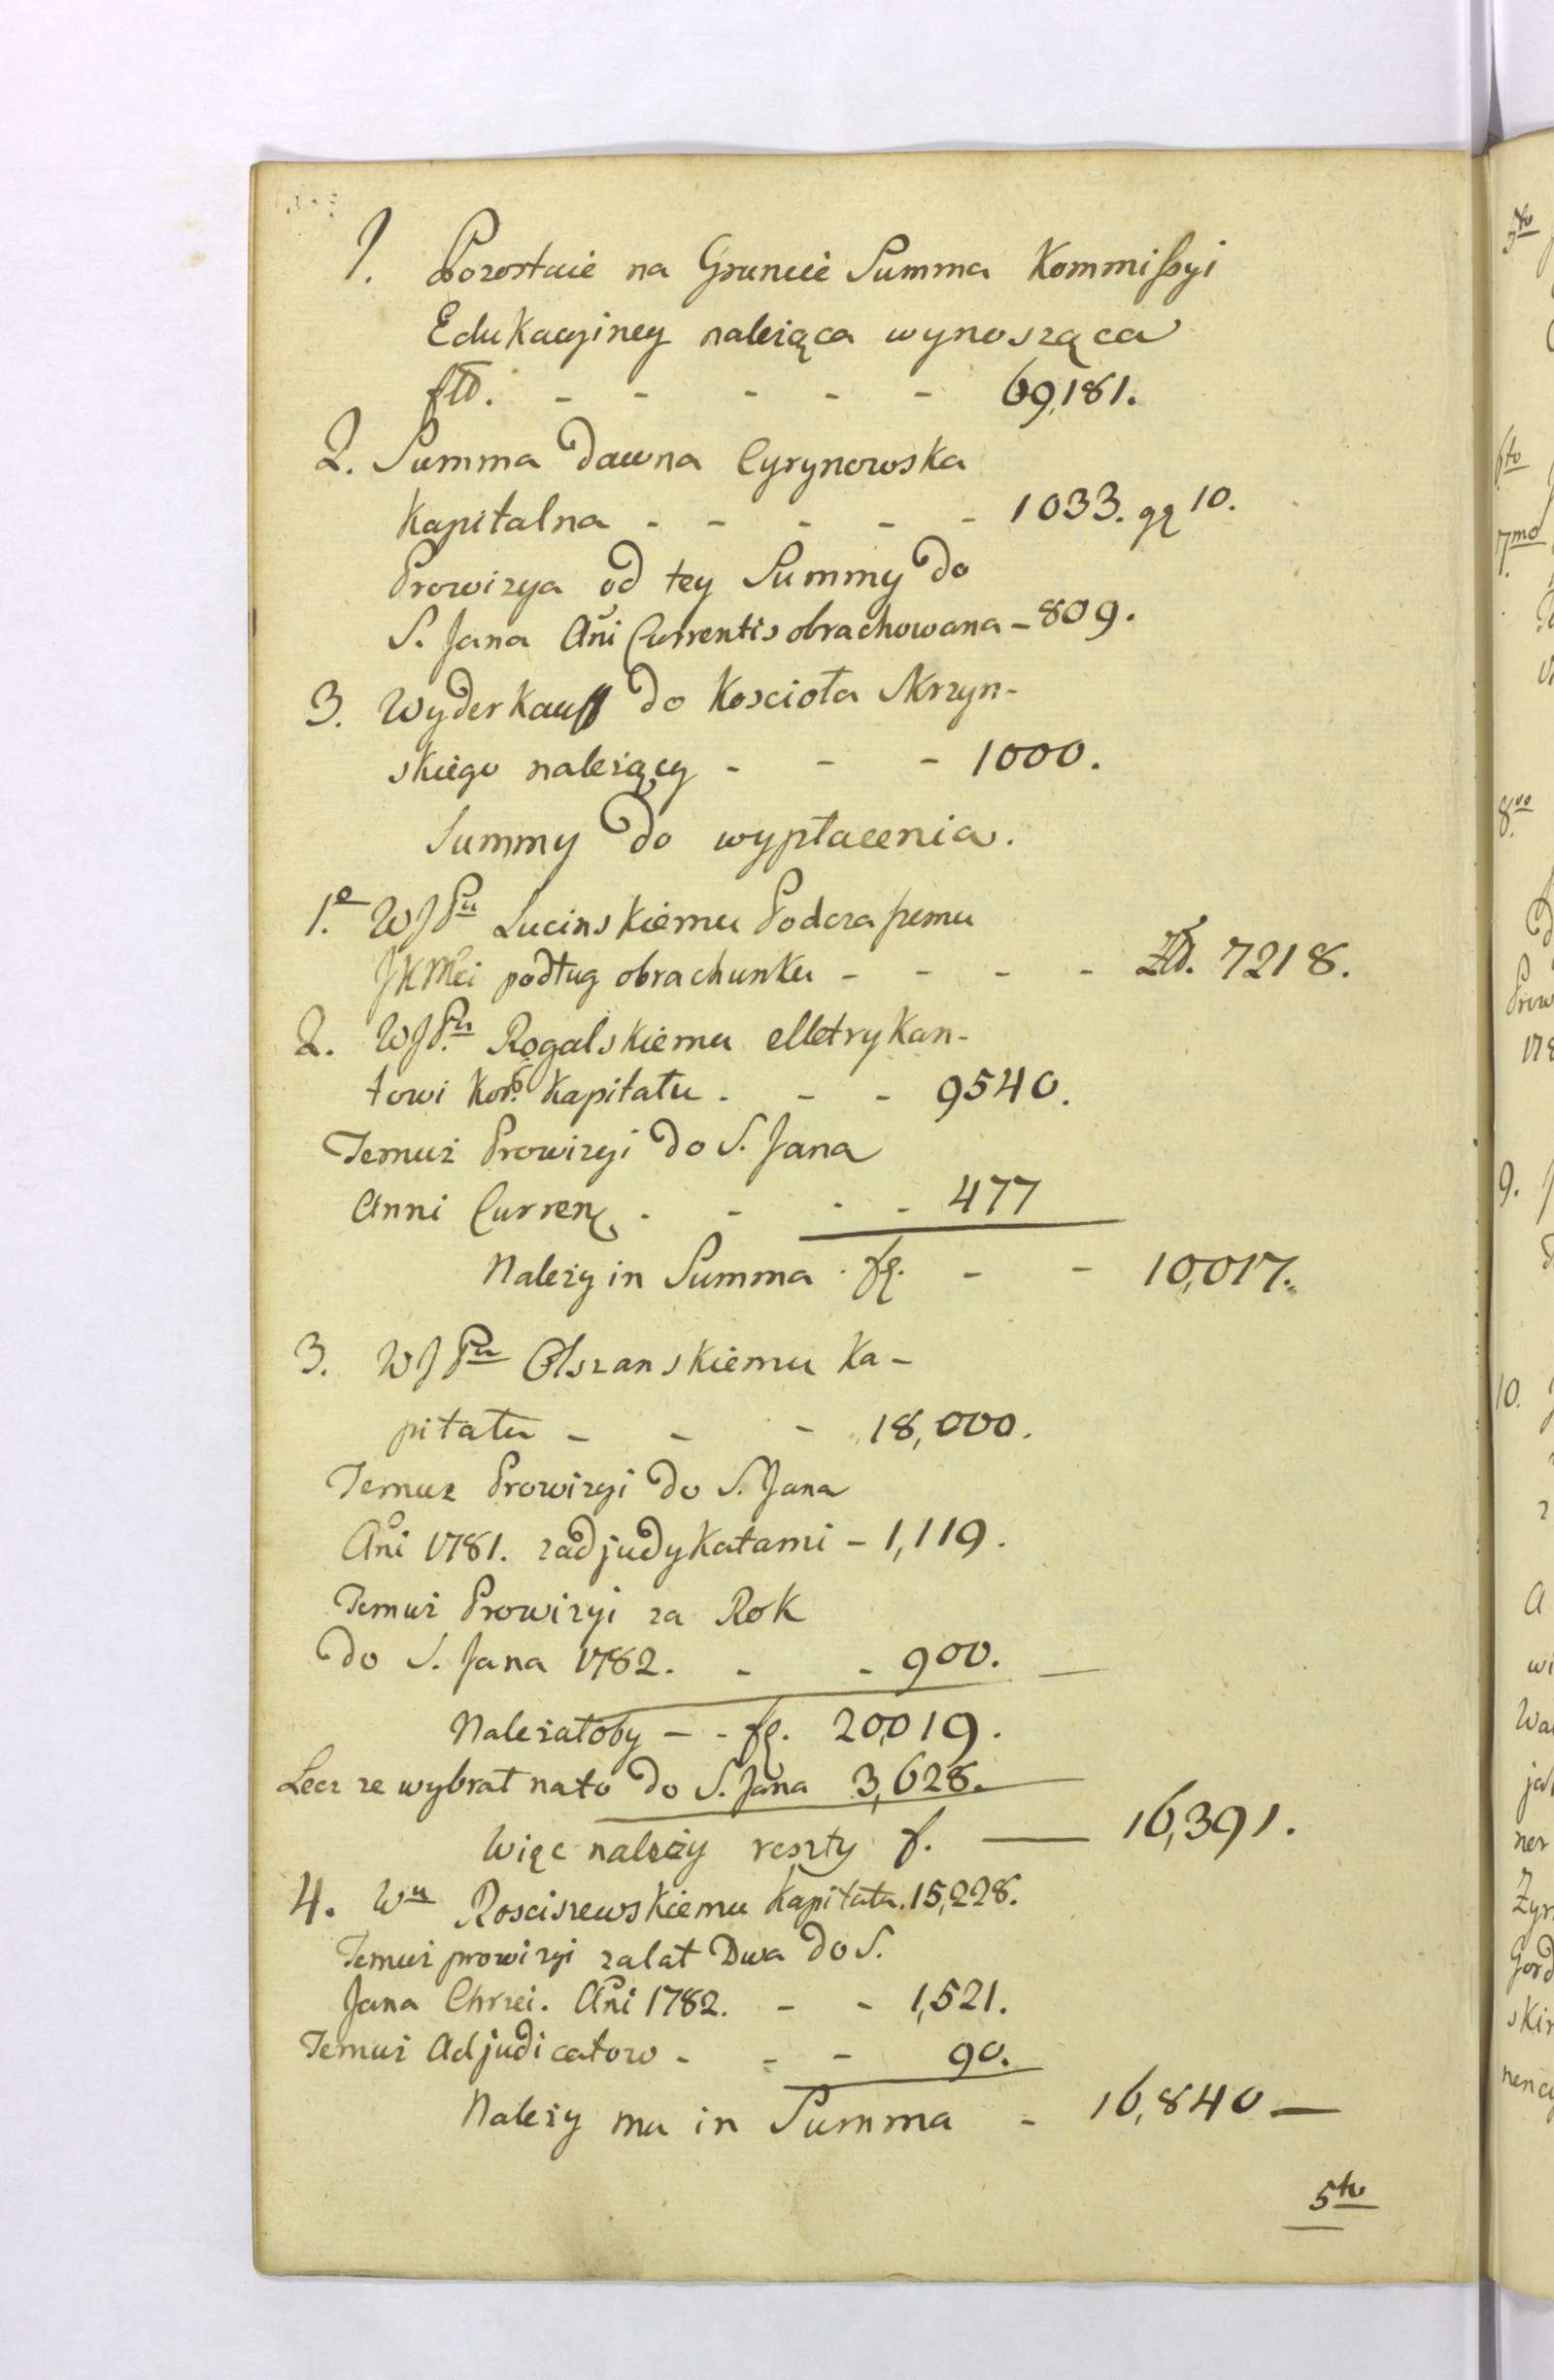 1. Pozostaie na Gruncie Summa Kommißyi
Edukacyiney należąca wynosząca
fld. - - - - - 69,181.
2. Summa dawna Cyrynowska
Kapitalna - - - - - 1033. gr 10.
Prowizya od tey Summy do
S. Jana Añi Currentis obrachowana - 809.
3. Wyderkauff do Koscioła Skrzyn-
skiego należący - - - 1000.
Summy do wypłacenia.
1.o WJPu Lucinskiemu Podczaszemu
JKMci podług obrachunku - - - - Złd. 7218.
2. WJPu Rogalskiemu Metrykan-
towi Kor. Kapitału - - - 9540.
Temuż Prowizyi do S. Jana
Anni Curren. - - - - 477
Należy in Summa fl. - - 10,017.
3. WJPu Olszanskiemu Ka-
pitału - - - 18,000.
Temuz Prowizyi do S. Jana
Añi 1781. z adjudykatami - 1,119.
Temuż Prowizyi za Rok
do S. Jana 1782. - - 900.
Należałoby - - fl. 20,019.
Lecz ze wybrał na to do S. Jana 3,628.
Więc należy reszty f. 16,391.
4. Wu Rosciszewskiemu Kapitału. 15,228.
Temuż prowizyi za lat Dwa do S.
Jana Chrzci. Añi 1782. - - 1,521.
Temuż Adjudicatow - - - 90.
Należy mu in Summa - 16,840 —
5to
5to
6to
7mo
8vo
178
9.
10.